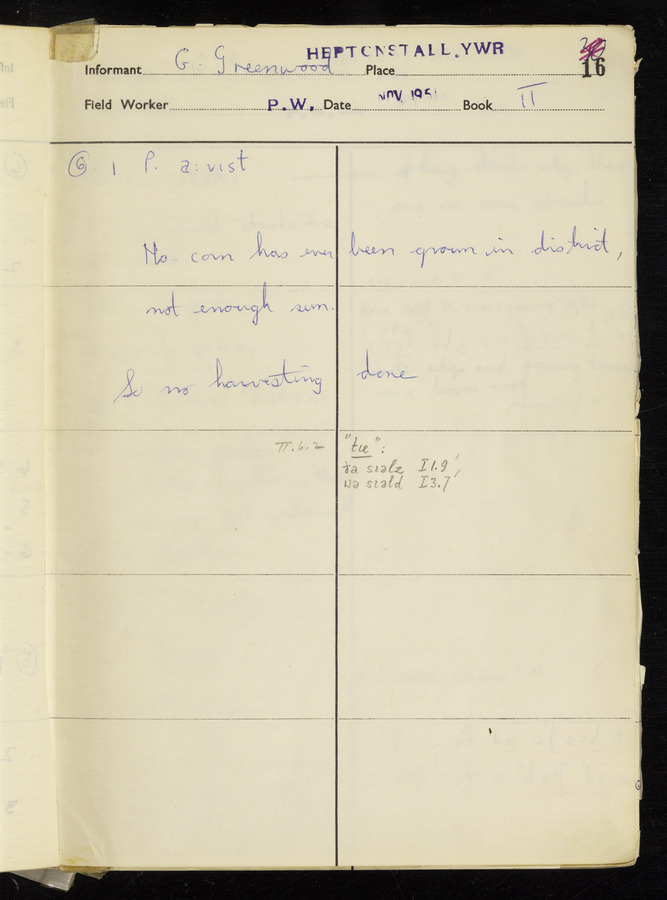 HEPTONSTALL, YWR
Informant G. Greenwood Place 16
Field Worker P.W. Date NOV 195 Book II
⑥ 1 P. a:vɪst
No corn has ever been grown in district,
not enough sun.
So no harvesting done
II.6.2 "tɪe":
I1.9
I3.7